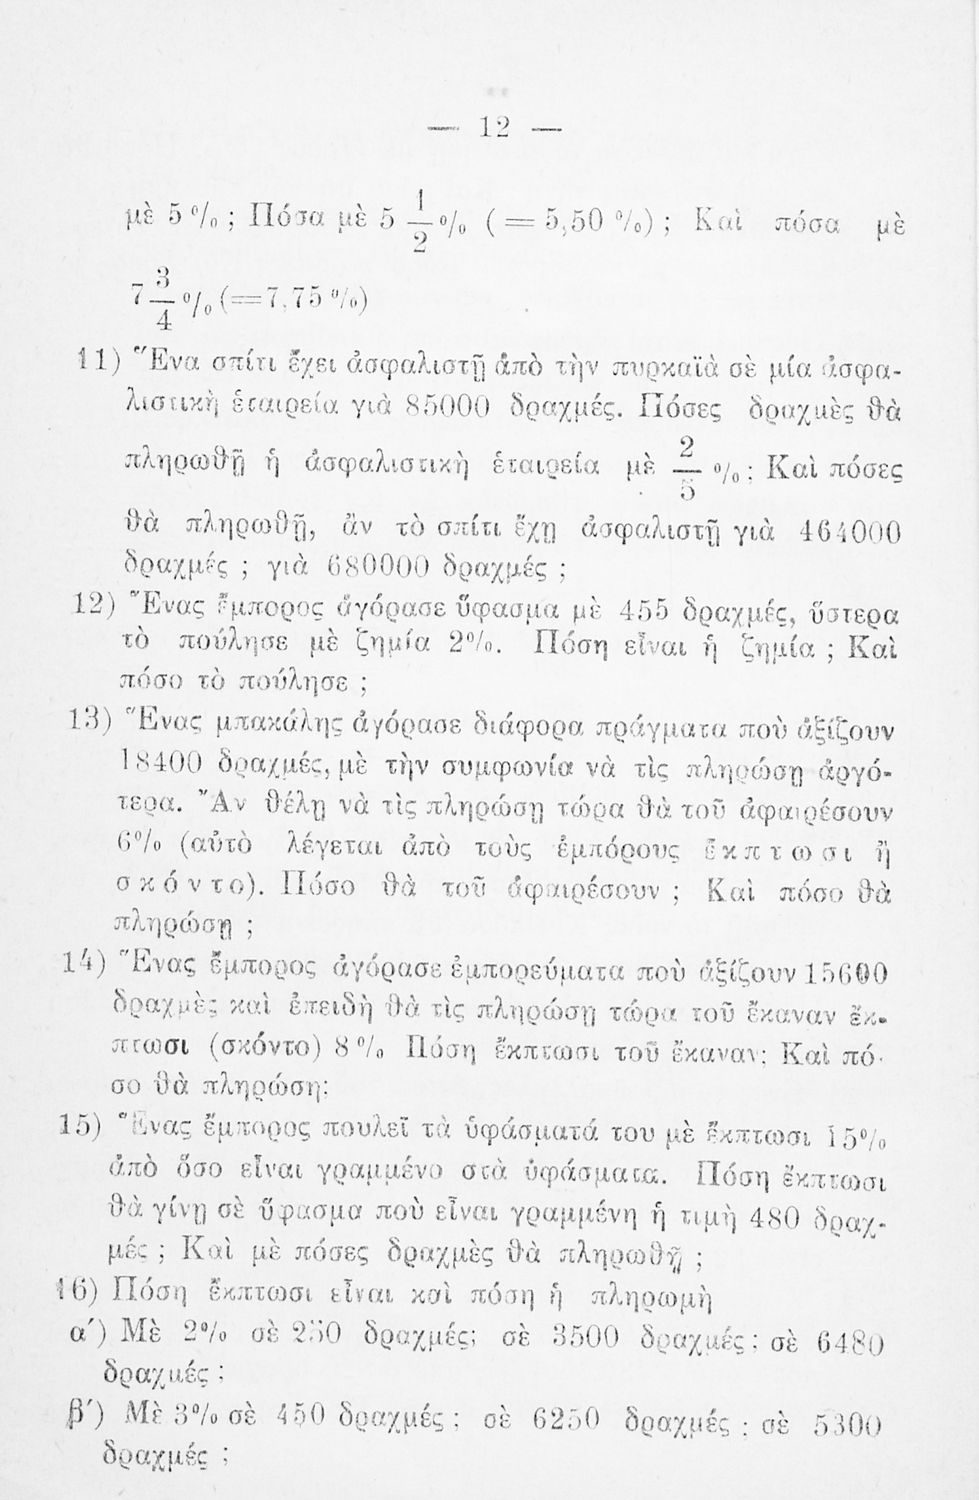 — 12 —
μὲ 5 %; Πόσα μὲ 5 1/2 % (=5,50 %); Καὶ πόσα μὲ
7 3/4 % (=7,75 %)
11) Ἕνα σπίτι ἔχει ἀσφαλιστῆ ἀπὸ τὴν πυρκαϊὰ σὲ μία ἀσφα-
λιστικὴ ἑταιρεία γιὰ 85000 δραχμές. Πόσες δραχμὲς θὰ
πληρωθῇ ἡ ἀσφαλιστικὴ ἑταιρεία μὲ 2/5 %; Καὶ πόσες
θὰ πληρωθῇ, ἂν τὸ σπίτι ἔχῃ ἀσφαλιστῆ γιὰ 464000
δραχμές ; γιὰ 680000 δραχμές ;
12) Ἕνας ἔμπορος ἀγόρασε ὕφασμα μὲ 455 δραχμές, ὕστερα
τὸ πούλησε μὲ ζημία 2%. Πόση εἶναι ἡ ζημία ; Καὶ
πόσο τὸ πούλησε ;
13) Ἕνας μπακάλης ἀγόρασε διάφορα πράγματα ποὺ ἀξίζουν
18400 δραχμές, μὲ τὴν συμφωνία νὰ τὶς πληρώσῃ ἀργό-
τερα. Ἂν θέλῃ νὰ τὶς πληρώσῃ τώρα θὰ τοῦ ἀφαιρέσουν
6% (αὐτὸ λέγεται ἀπὸ τοὺς ἐμπόρους ἔκπτωσι ἢ
σκόντο). Πόσο θὰ τοῦ ἀφαιρέσουν ; Καὶ πόσο θὰ
πληρώσῃ ;
14) Ἕνας ἔμπορος ἀγόρασε ἐμπορεύματα ποὺ ἀξίζουν 15600
δραχμὲς καὶ ἐπειδὴ θὰ τὶς πληρώσῃ τώρα τοῦ ἔκαναν ἔκ-
πτωσι (σκόντο) 8 % Πόση ἔκπτωσι τοῦ ἔκαναν; Καὶ πό-
σο θὰ πληρώσῃ;
15) Ἕνας ἔμπορος πουλεῖ τὰ ὑφάσματά του μὲ ἔκπτωσι 15%
ἀπὸ ὅσο εἶναι γραμμένο στὰ ὑφάσματα. Πόση ἔκπτωσι
θὰ γίνῃ σὲ ὕφασμα ποὺ εἶναι γραμμένη ἡ τιμὴ 480 δραχ-
μές ; Καὶ μὲ πόσες δραχμὲς θὰ πληρωθῇ ;
16) Πόση ἔκπτωσι εἶναι καὶ πόση ἡ πληρωμὴ
α΄) Μὲ 2% σὲ 250 δραχμές; σὲ 3500 δραχμές; σὲ 6480
δραχμές ;
β΄) Μὲ 3% σὲ 450 δραχμές ; σὲ 6250 δραχμές ; σὲ 5300
δραχμές ;